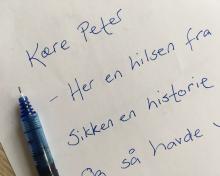 Kære Peter
- Her en hilsen fra
Sikken en historie
Og så havde v